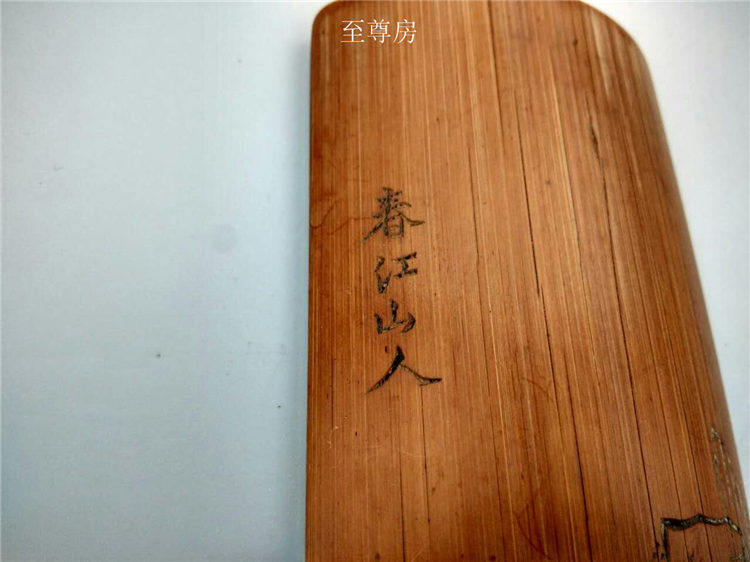 至尊房
春江山人